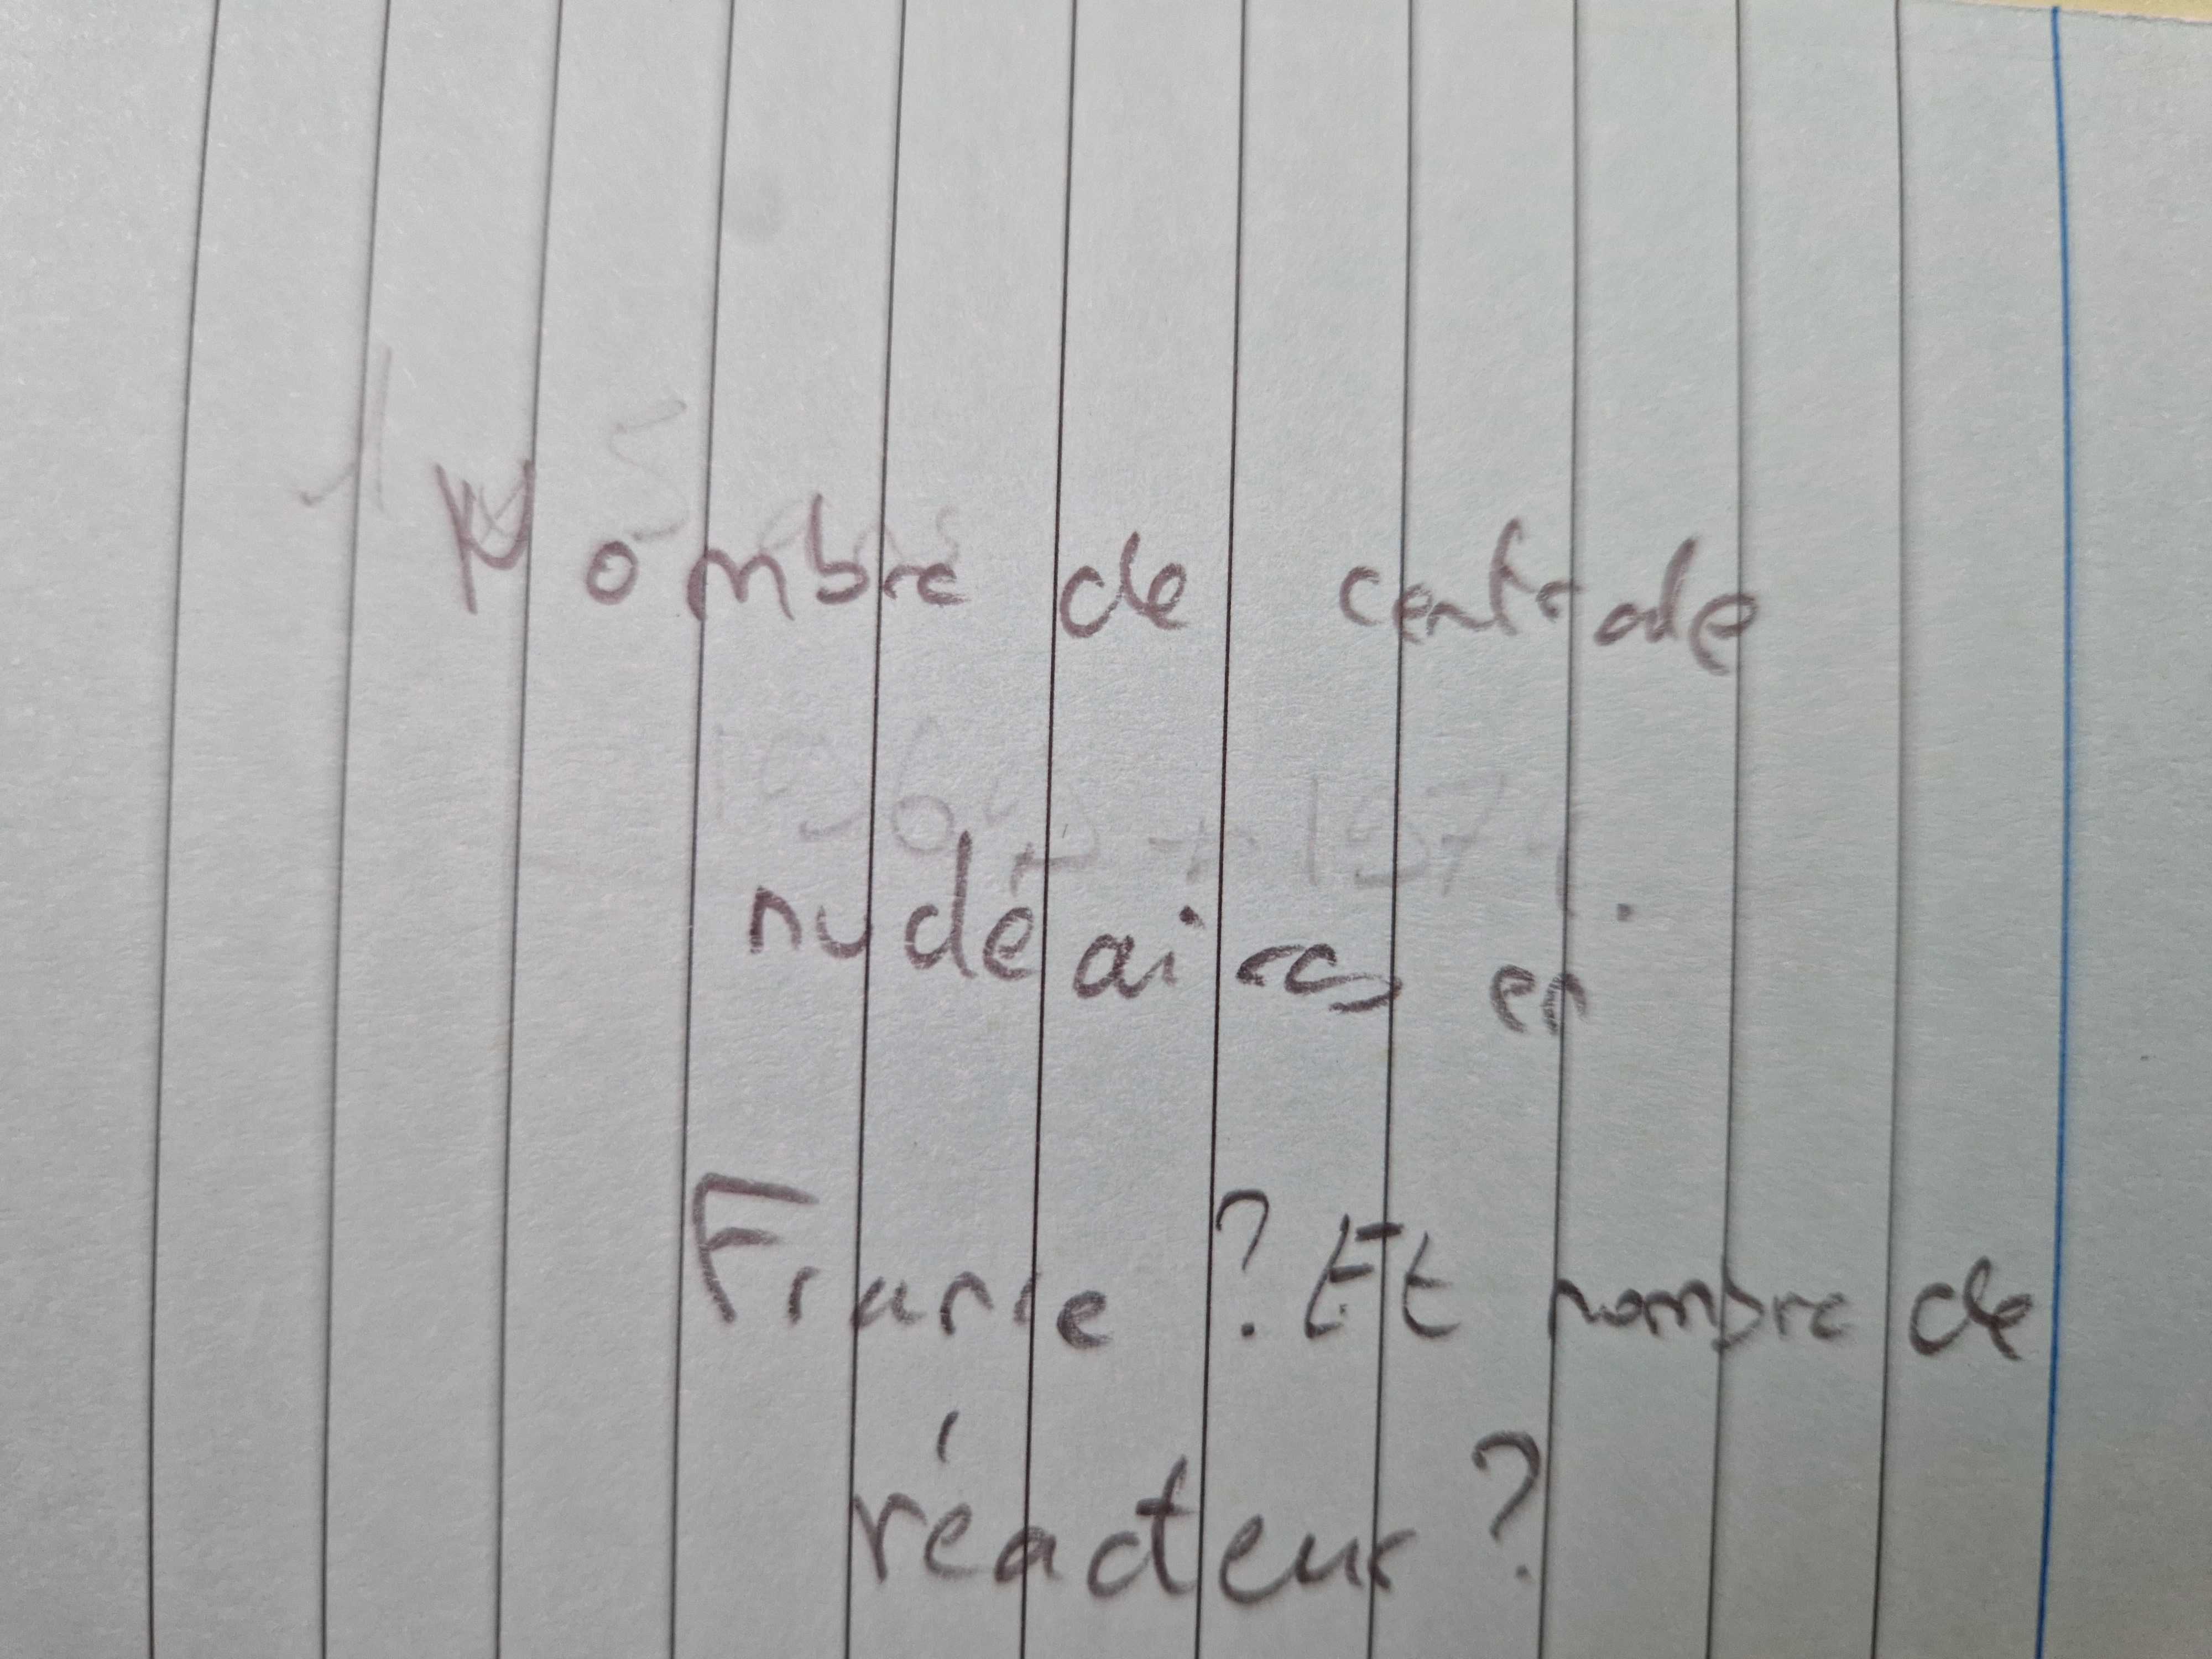 Nombre de centrale
nucléaires en
France ? Et nombre de
réacteur ?